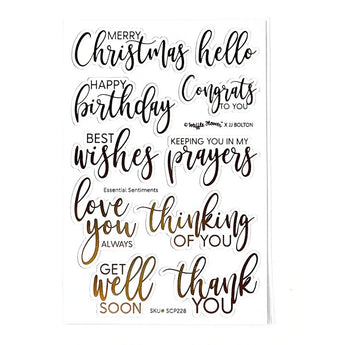 MERRY
Christmas hello
HAPPY
birthday
Congrats
TO YOU
© Waffle Flower X JJ BOLTON
BEST
wishes
KEEPING YOU IN MY
prayers
Essential Sentiments
love
you
ALWAYS
thinking
OF YOU
GET
well
SOON
thank
YOU
SKU# SCP228